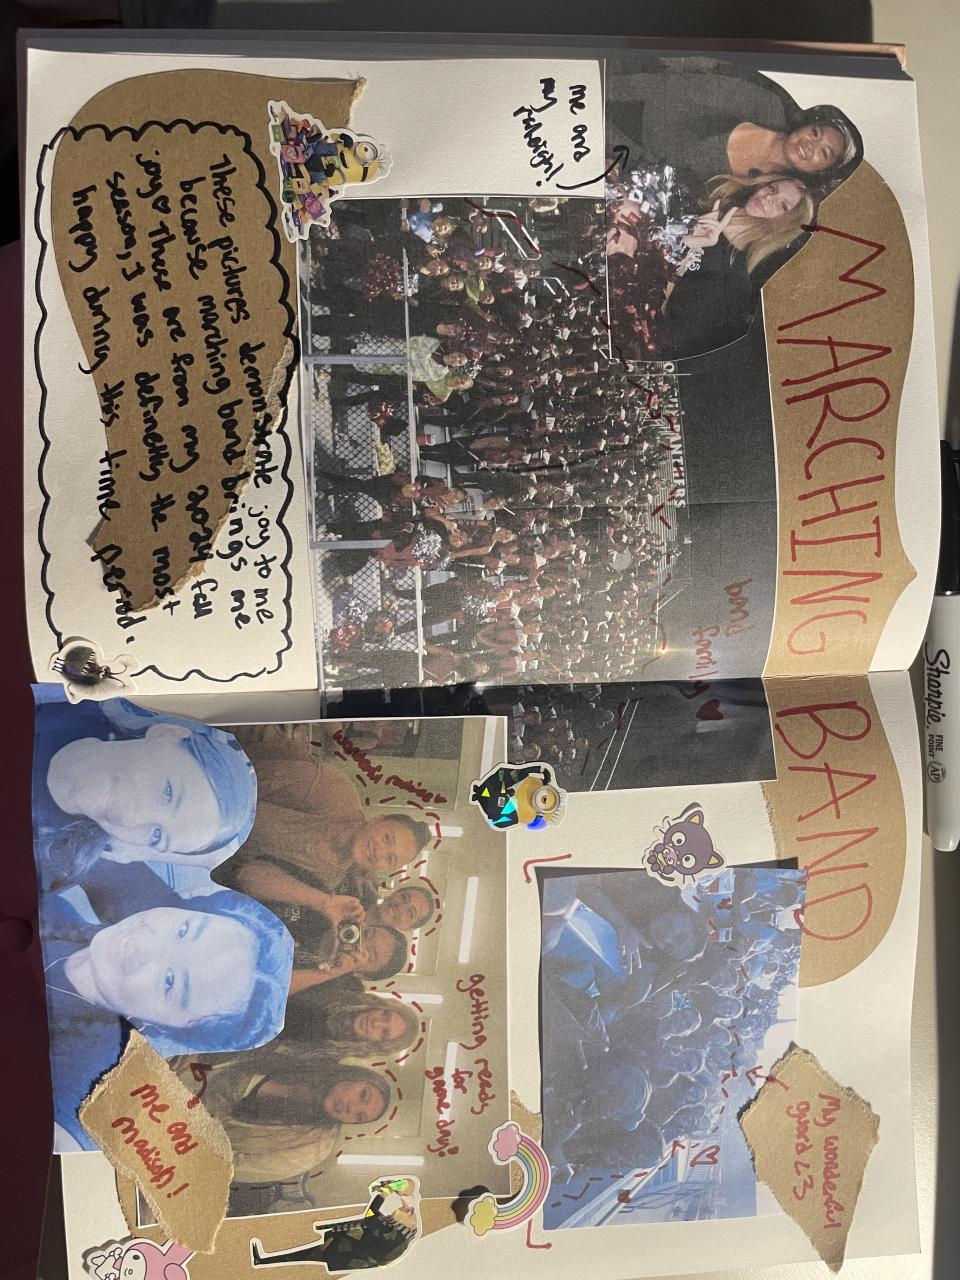 MARCHING BAND
me and
my
band
family
PANTHERS
These pictures demonstrate joy to me
because marching band brings me
joy These are from my 2024 fall
season, I was definetly the most
happy during this time period.
getting ready
for
game day!
me and
Madison!
My wonderful
guard <3
Sharpie.
FINE
POINT
AP